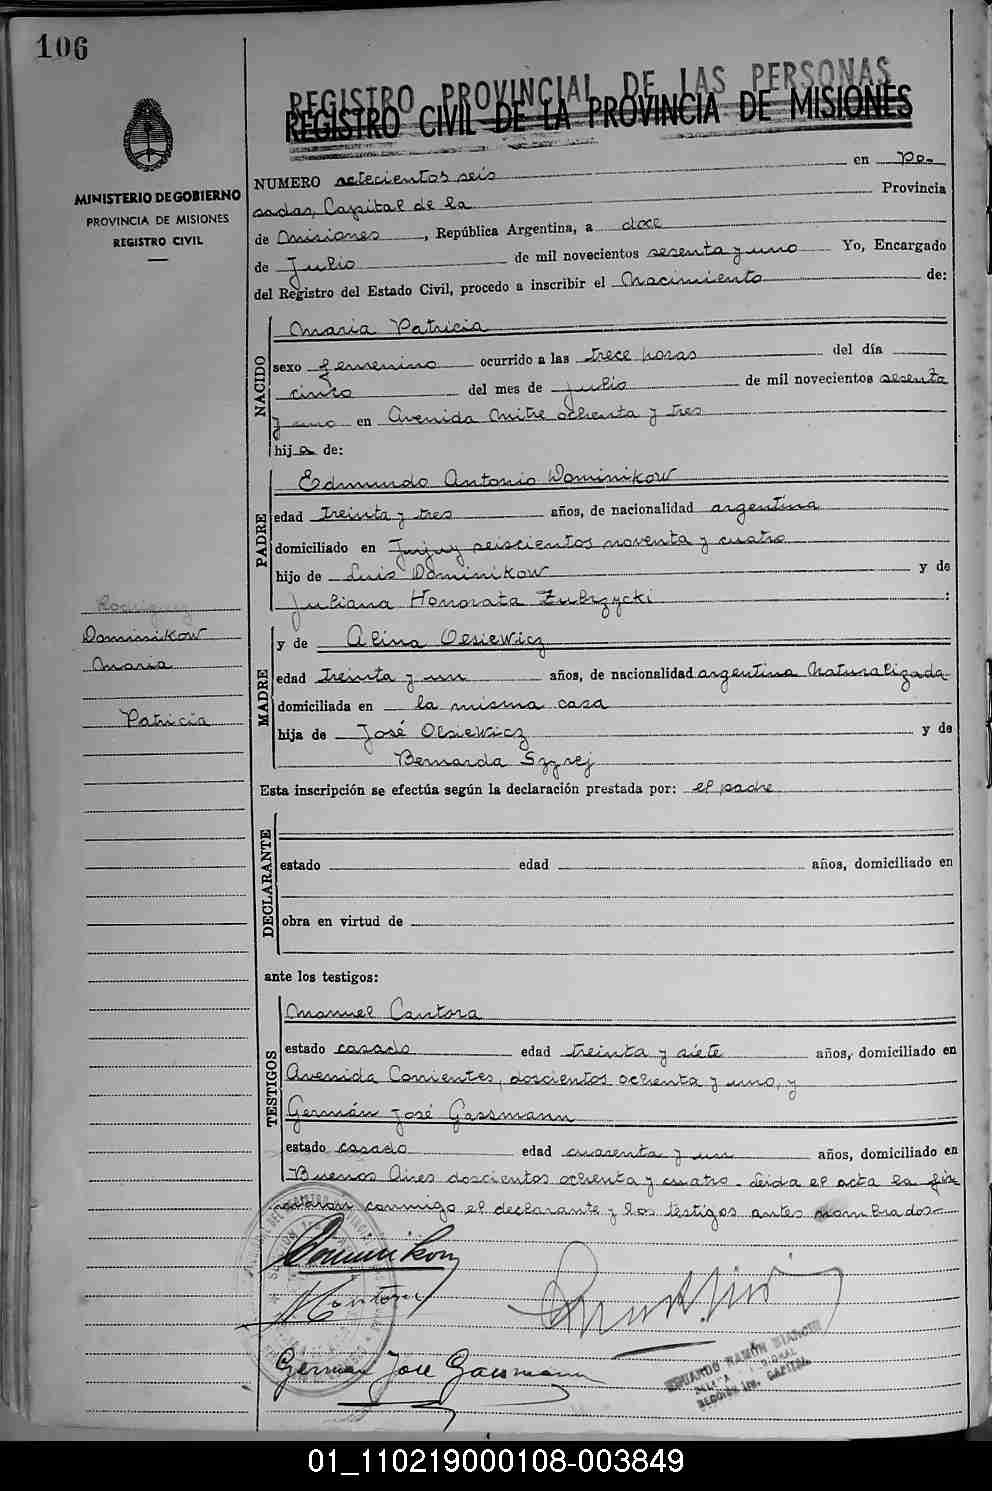 106
REGISTRO PROVINCIAL DE LAS PERSONAS
REGISTRO CIVIL DE LA PROVINCIA DE MISIONES
MINISTERIO DE GOBIERNO
PROVINCIA DE MISIONES
REGISTRO CIVIL
NUMERO setecientos seis en Po-
sadas, Capital de la Provincia
de Misiones, República Argentina, a doce
de Julio de mil novecientos sesenta y uno Yo, Encargado
del Registro del Estado Civil, procedo a inscribir el Nacimiento de:
NACIDO
Maria Patricia
sexo femenino ocurrido a las trece horas del día
cinco del mes de julio de mil novecientos sesenta
y uno en Avenida Mitre ochenta y tres
hija de:
PADRE
Edmundo Antonio Dominikow
edad treinta y tres años, de nacionalidad argentina
domiciliado en Jujuy seiscientos noventa y cuatro
hijo de Luis Dominikow y de
Juliana Honorata Zubrzycki :
Rodriguez
Dominikow
Maria
Patricia
MADRE
y de Alina Olsiewicz
edad treinta y un años, de nacionalidad argentina Naturalizada
domiciliada en la misma casa
hija de José Olsiewicz y de
Bernarda Szyrej
Esta inscripción se efectúa según la declaración prestada por: el padre
DECLARANTE
estado edad años, domiciliado en
obra en virtud de
ante los testigos:
TESTIGOS
Manuel Cantora
estado casado edad treinta y siete años, domiciliado en
Avenida Corrientes, doscientos ochenta y uno, y
Germán José Gassmann
estado casado edad cuarenta y un años, domiciliado en
Buenos Aires doscientos ochenta y cuatro. Leida el acta la fir-
maron conmigo el declarante y los testigos antes nombrados-
Dominikow
German Jose Gassmann
EDUARDO RAMÓN BIANCHI
SECCIÓN 1RA. CAPITAL
01_110219000108-003849